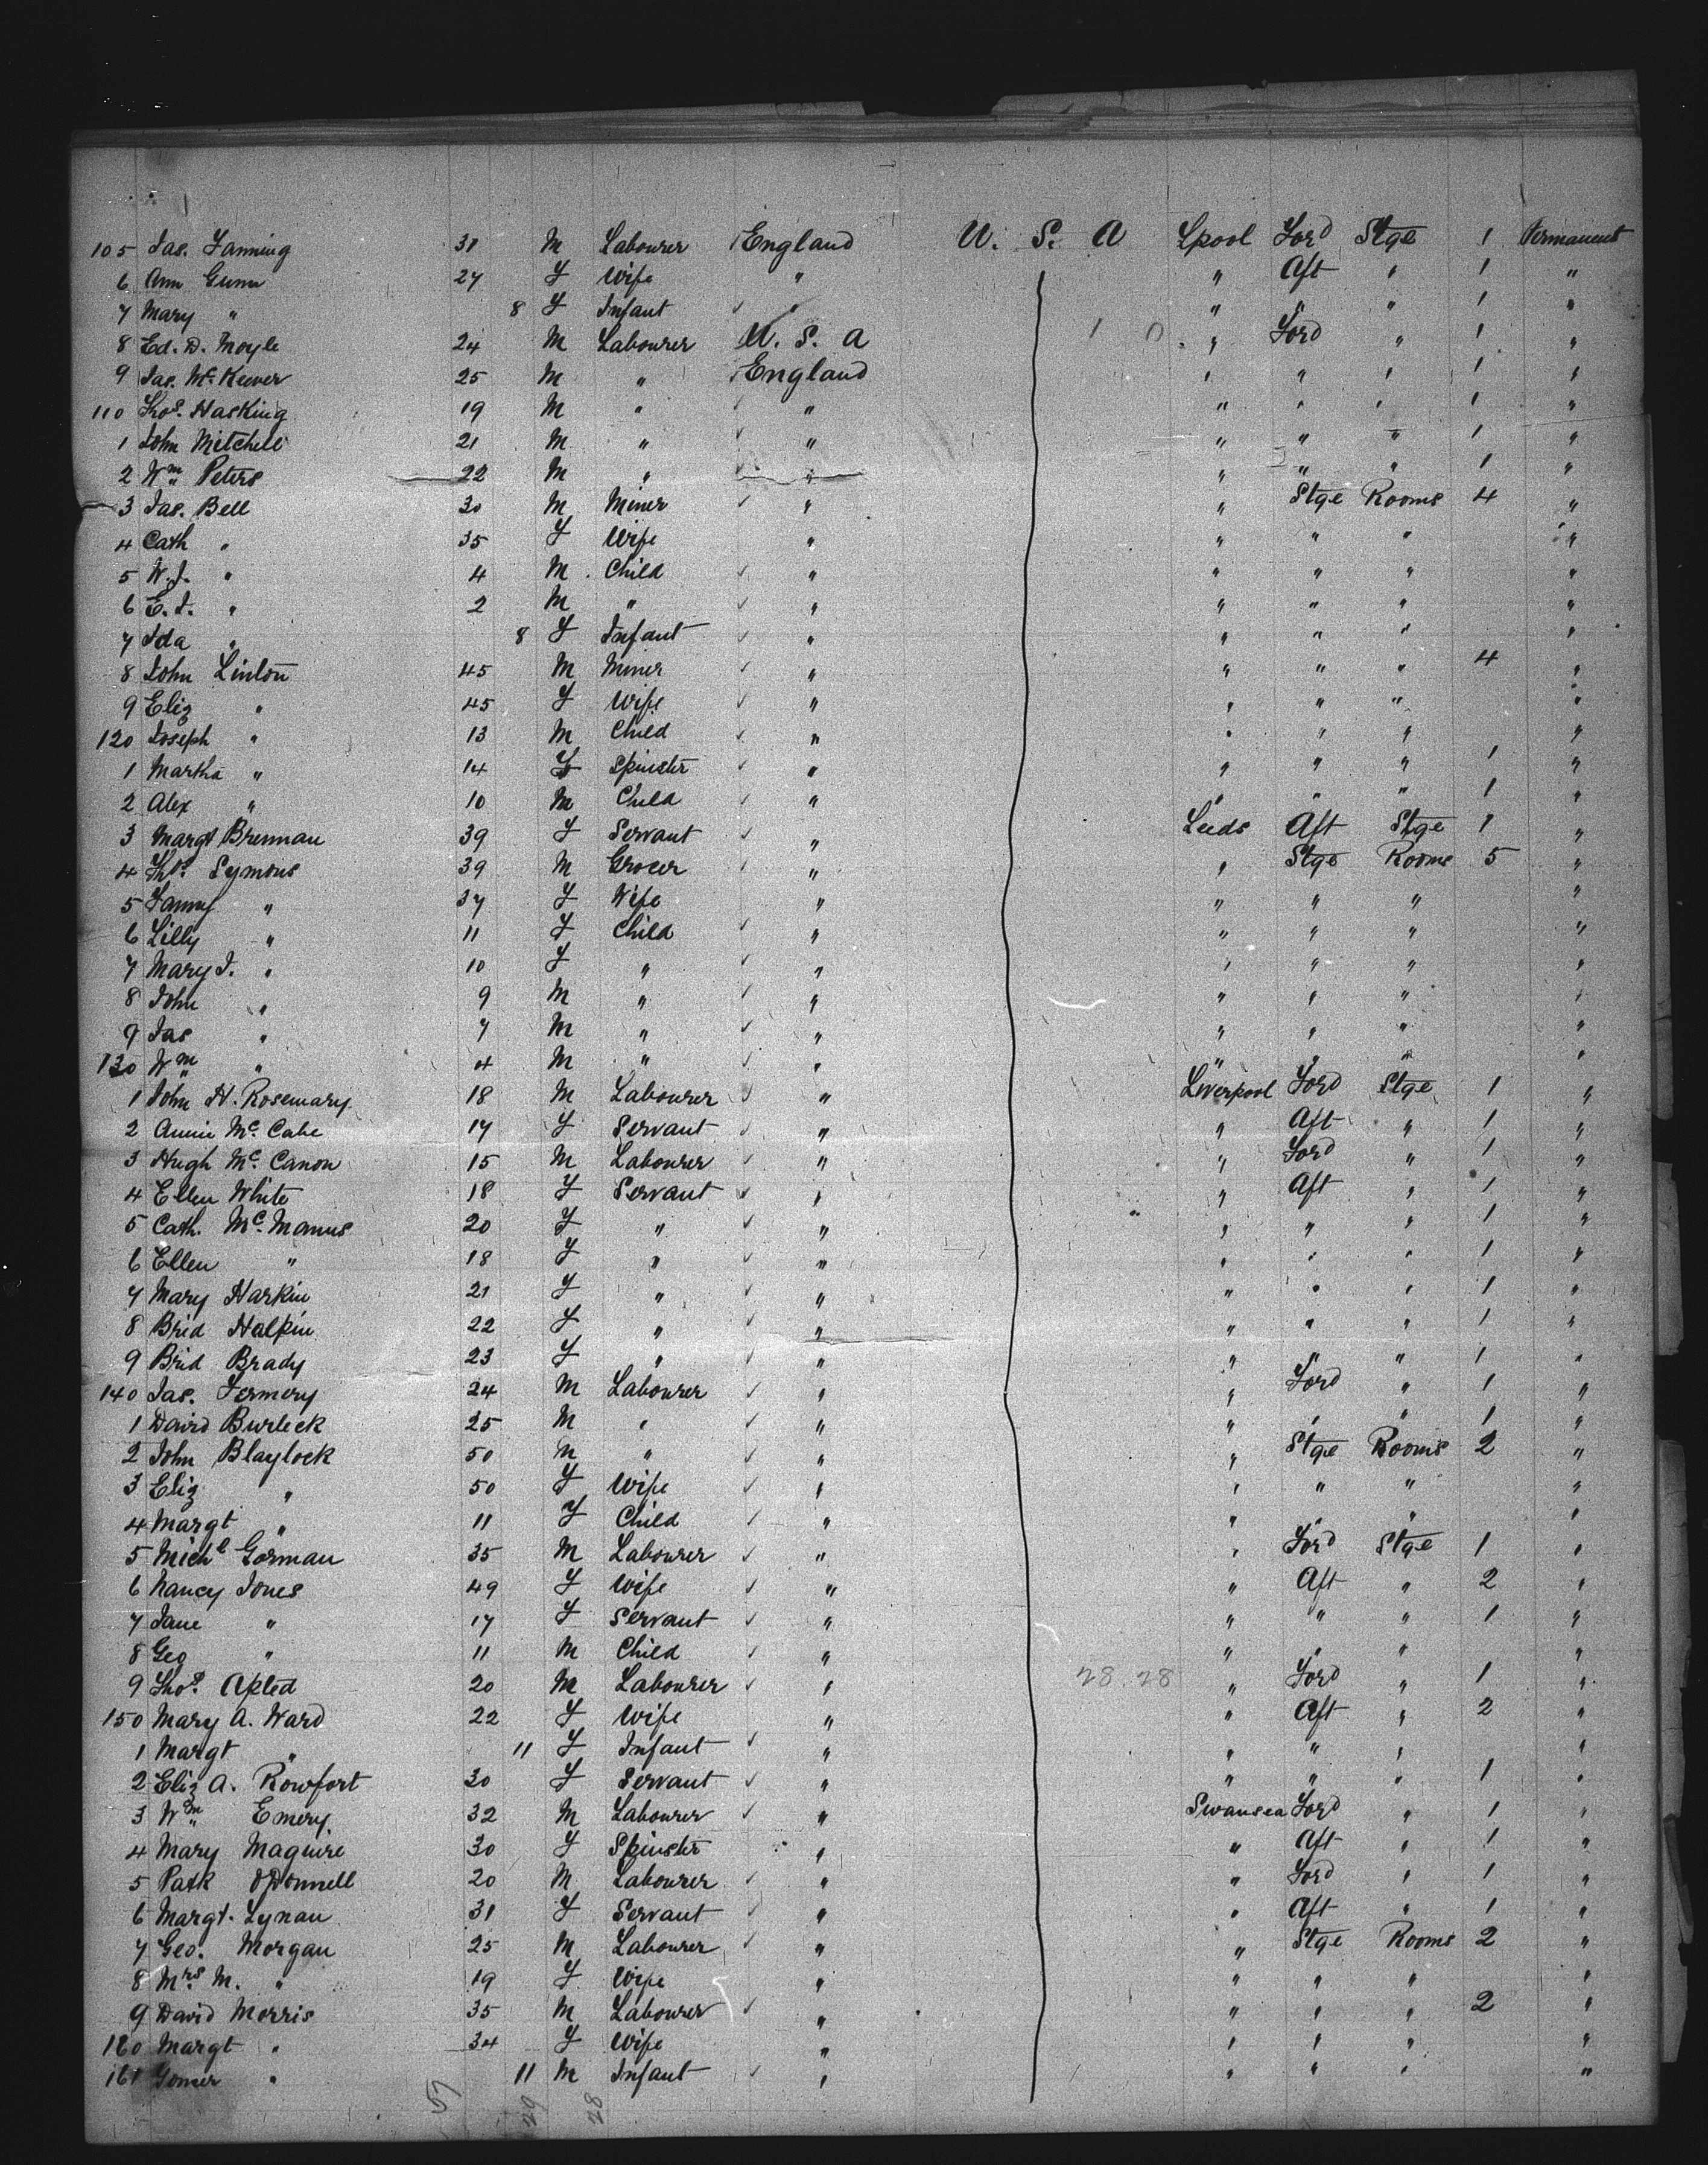 105 Jas. Fanning 31 M Labourer England U. S. A Lpool Ford Stge 1 Permanent
6 Ann Gunn 27 F Wife " " Aft " 1 "
7 Mary " 8 F Infant " " " " 1 "
8 Ed. D. Moyle 24 M Labourer U. S. A " Ford " 1 "
9 Jas. McKeever 25 M " England " " " 1 "
110 Thos. Hasking 19 M " " " " " 1 "
1 John Mitchell 21 M " " " " " 1 "
2 Wm Peters 22 M " " " " " 1 "
3 Jas. Bell 30 M Miner " " Stge Rooms 4 "
4 Cath " 35 F Wife " " " " "
5 W.J. " 4 M Child " " " " "
6 E.J. " 2 M " " " " " "
7 Ida " 8 F Infant " " " " "
8 John Linton 45 M Miner " " " " 4 "
9 Eliz " 45 F Wife " " " " "
120 Joseph " 13 M Child " " " " "
1 Martha " 14 F Spinster " " " " 1 "
2 Alex " 10 M Child " " " " 1 "
3 Margt Brennan 39 F Servant " Leeds Aft Stge 1 "
4 Thos. Symons 39 M Grocer " " Stge Rooms 5 "
5 Fanny " 37 F Wife " " " " "
6 Lilly " 11 F Child " " " " "
7 Mary J. " 10 F " " " " " "
8 John " 9 M " " " " " "
9 Jas " 7 M " " " " " "
130 Wm " 4 M " " " " " "
1 John H. Rosemary 18 M Labourer " Liverpool Ford Stge 1 "
2 Annie McCabe 17 F Servant " " Aft " 1 "
3 Hugh McCanon 15 M Labourer " " Ford " 1 "
4 Ellen White 18 F Servant " " Aft " 1 "
5 Cath. McManus 20 F " " " " " 1 "
6 Ellen " 18 F " " " " " 1 "
7 Mary Harkin 21 F " " " " " 1 "
8 Brid Halpin 22 F " " " " " 1 "
9 Brid Brady 23 F " " " " " 1 "
140 Jas. Fermery 24 M Labourer " " Ford " 1 "
1 David Burleck 25 M " " " " " 1 "
2 John Blaylock 50 M " " " Stge Rooms 2 "
3 Eliz " 50 F Wife " " " " "
4 Margt " 11 F Child " " " " "
5 Michl Gorman 35 M Labourer " " Ford Stge 1 "
6 Nancy Jones 49 F Wife " " Aft " 2 "
7 Jane " 17 F Servant " " " " 1 "
8 Geo " 11 M Child " " " " "
9 Thos. Apted 20 M Labourer " 28 28 " Ford " 1 "
150 Mary A. Ward 22 F Wife " " Aft " 2 "
1 Margt " 11 F Infant " " " " "
2 Eliz A. Rowfort 30 F Servant " " " " 1 "
3 Wm Emery 32 M Labourer " Swansea Ford " 1 "
4 Mary Maguire 30 F Spinster " " Aft " 1 "
5 Patk O'Donnell 20 M Labourer " " Ford " 1 "
6 Margt. Lynan 31 F Servant " " Aft " 1 "
7 Geo. Morgan 25 M Labourer " " Stge Rooms 2 "
8 Mrs M. " 19 F Wife " " " " "
9 David Morris 35 M Labourer " " " " 2 "
160 Margt " 34 F Wife " " " " "
161 Gomer " 11 M Infant " " " " "
57 29 28